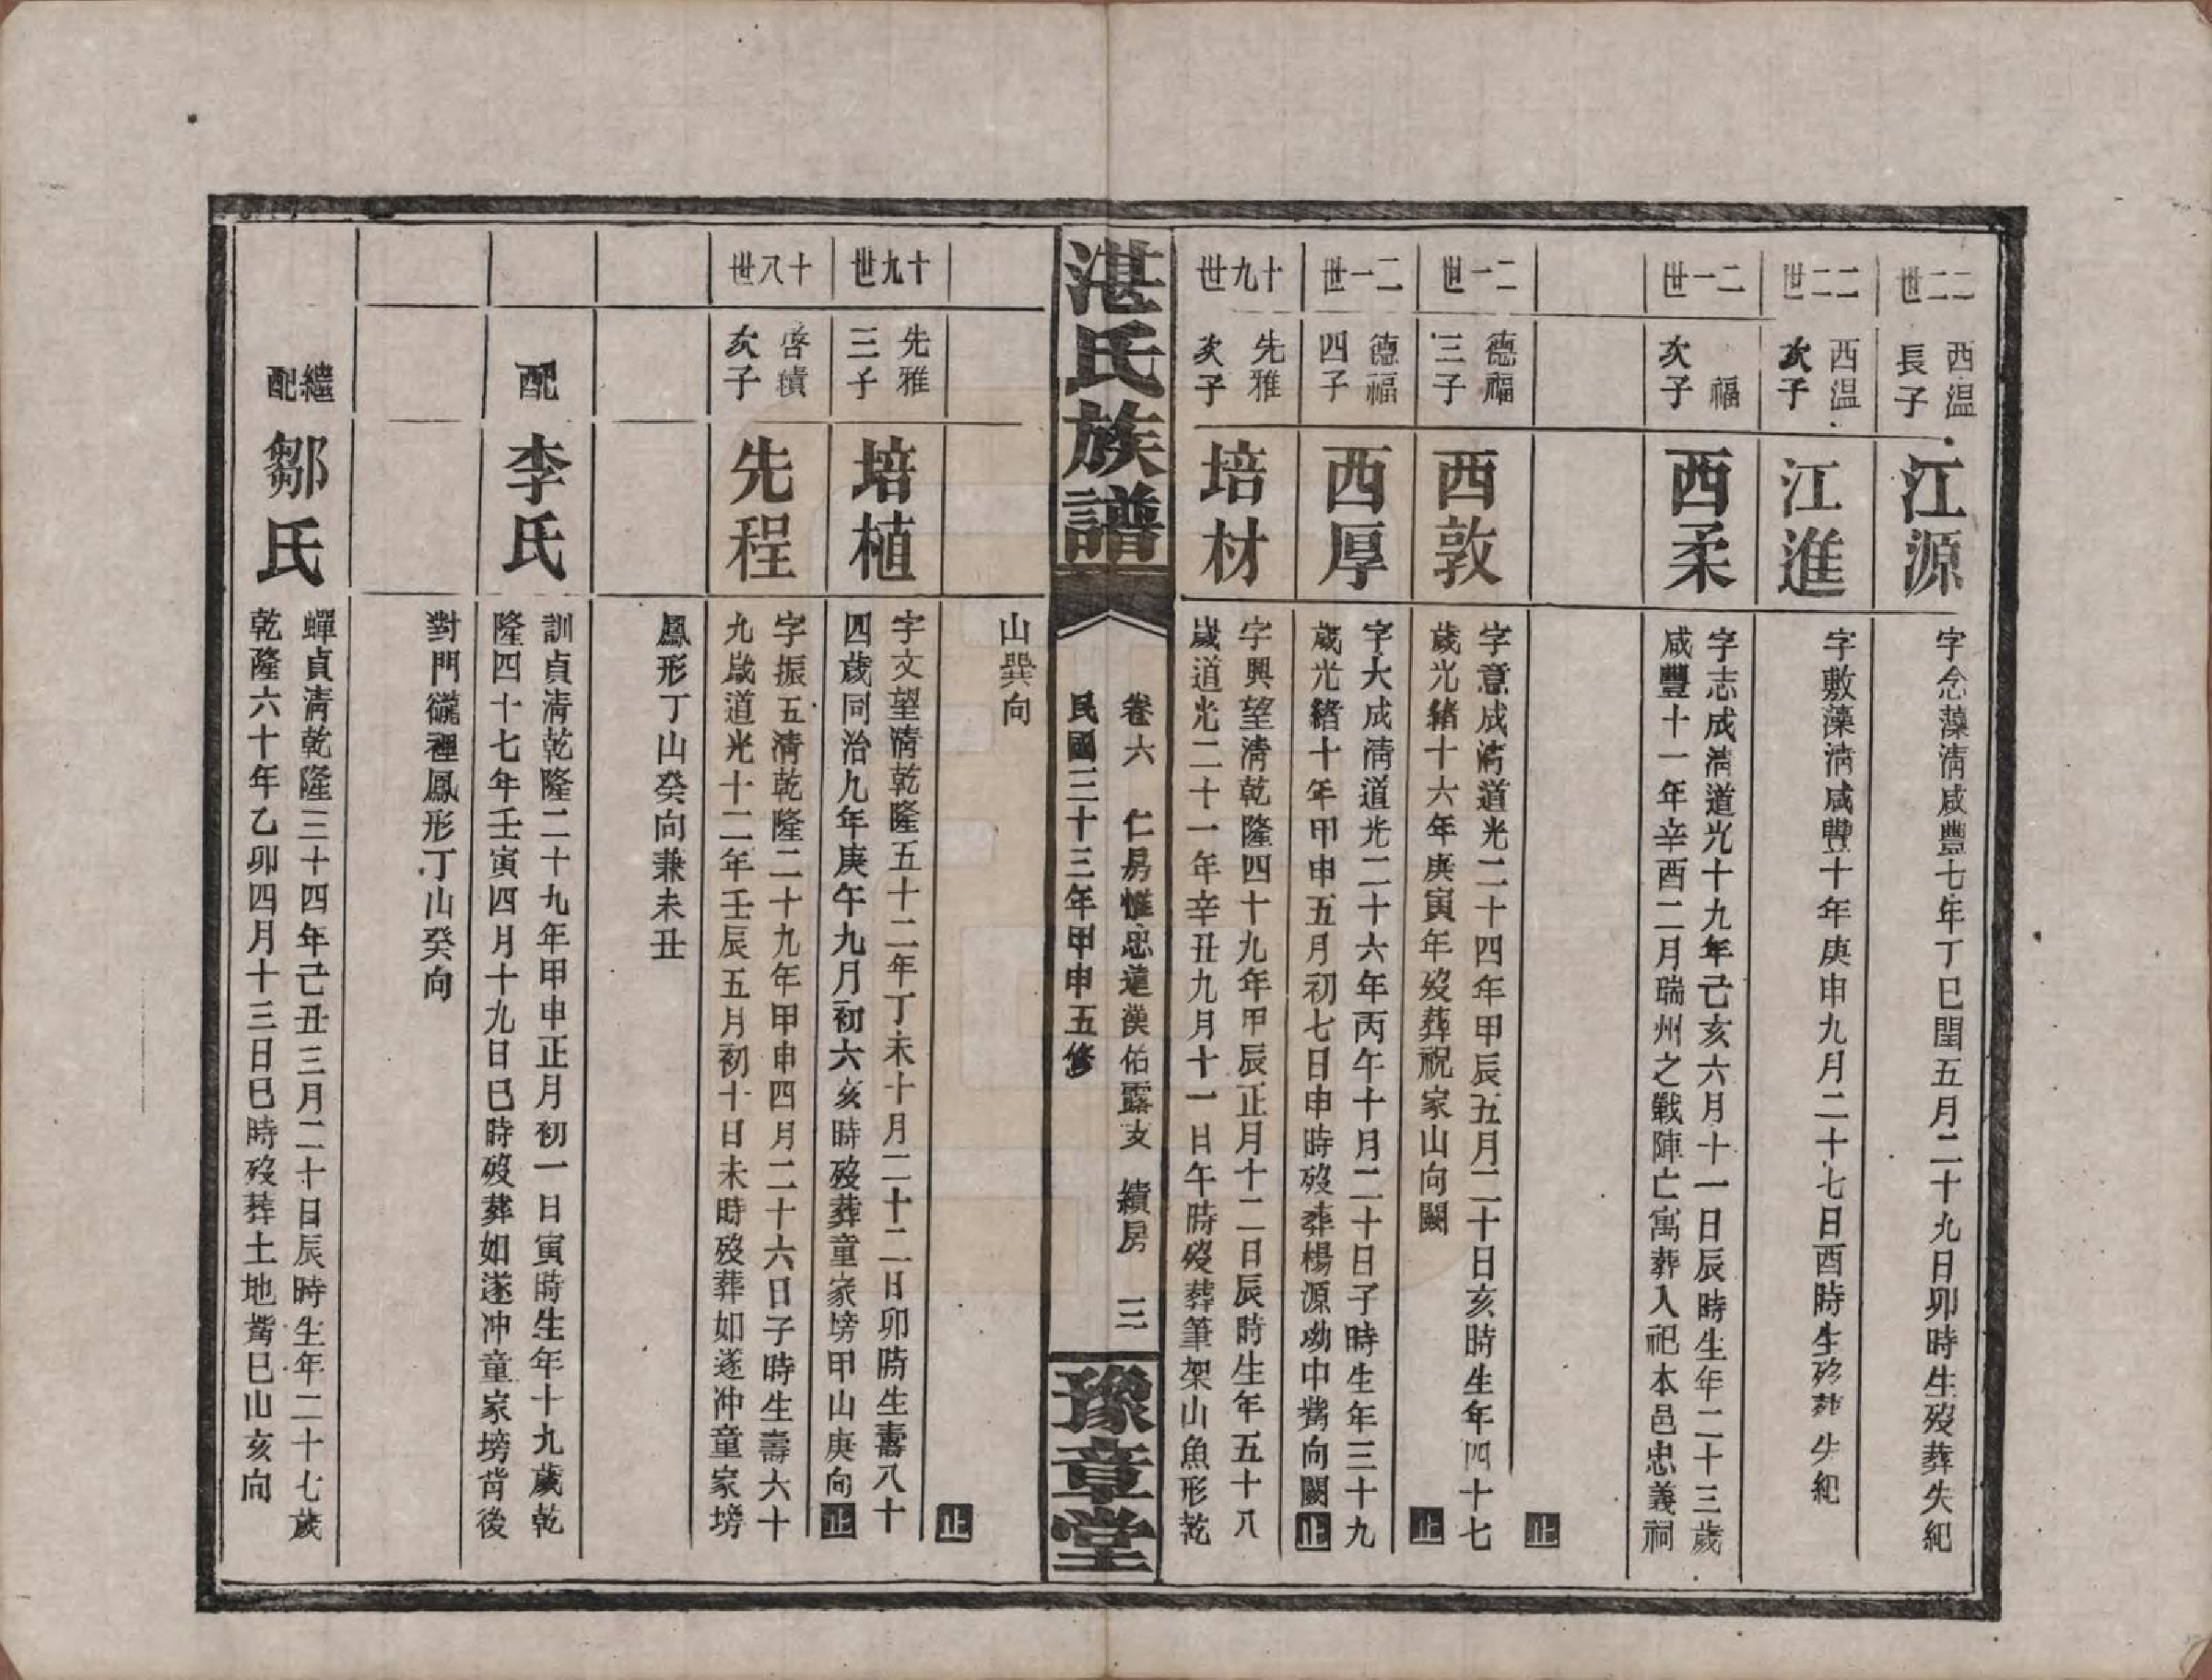 二二世
西温
長子
江源
字念藻淸咸豐七年丁巳閏五月二十九日卯時生歿葬失紀
二二世
西温
次子
江進
字敷藻淸咸豐十年庚申九月二十七日酉時生歿葬失紀
二一世
福
次子
西柔
字志成淸道光十九年己亥六月十一日辰時生年二十三歲
咸豐十一年辛酉二月瑞州之戰陣亡寓葬入祀本邑忠義祠
止
二一世
德福
三子
西敦
字意成淸道光二十四年甲辰五月二十日亥時生年四十七
歲光緒十六年庚寅年歿葬祝家山向闕
止
二一世
德福
四子
西厚
字大成淸道光二十六年丙午十月二十日子時生年三十九
歲光緒十年甲申五月初七日申時歿葬楊源坳中嘴向闕止
十九世
先雅
次子
培材
字興望淸乾隆四十九年甲辰正月十二日辰時生年五十八
歲道光二十一年辛丑九月十一日午時歿葬筆架山魚形乾
湛氏族譜
卷六 仁房惟忠蓮漢佑露支 績房 三
民國三十三年甲申五修
豫章堂
山巽向
止
十九世
先雅
三子
培植
字文望淸乾隆五十二年丁未十月二十二日卯時生壽八十
四歲同治九年庚午九月初六亥時歿葬童家塝甲山庚向止
十八世
啓績
次子
先程
字振五淸乾隆二十九年甲申四月二十六日子時生壽六十
九歲道光十二年壬辰五月初十日未時歿葬如遂冲童家塝
鳳形丁山癸向兼未丑
配
李氏
訓貞淸乾隆二十九年甲申正月初一日寅時生年十九歲乾
隆四十七年壬寅四月十九日巳時歿葬如遂冲童家塝背後
對門巃裡鳳形丁山癸向
繼
配
鄒氏
蟬貞淸乾隆三十四年己丑三月二十日辰時生年二十七歲
乾隆六十年乙卯四月十三日巳時歿葬土地嘴巳山亥向